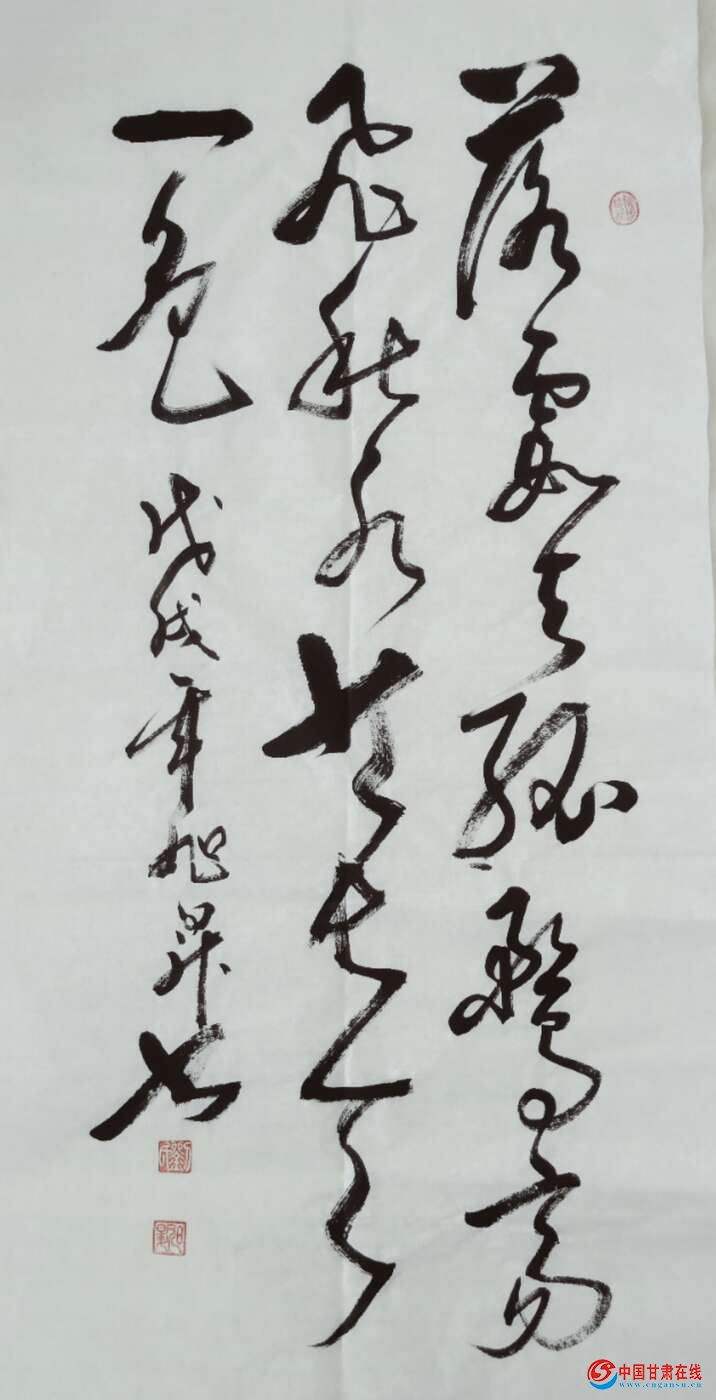 落霞与孤鹜齐
飞秋水共长天
一色 戊戌年旭昇书
中国甘肃在线
www.cngansu.cn